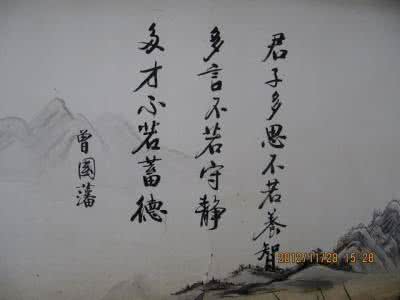 君子多思不若养智
多言不若守静
多才不若蓄德
曾国藩
2012/11/28 15:28